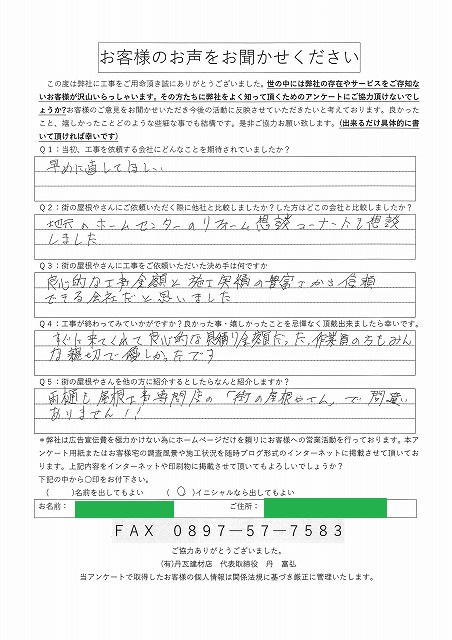 お客様のお声をお聞かせください
この度は弊社に工事をご用命頂き誠にありがとうございました。世の中には弊社の存在やサービスをご存知な
いお客様が沢山いらっしゃいます。その方たちに弊社をよく知って頂くためのアンケートにご協力頂けないでし
ょうか?お客様のご意見をお聞かせいただき今後の活動に反映させていただきたいと考えております。良かった
こと、嬉しかったことどのような些細な事でも結構です。是非ご協力お願い致します。(出来るだけ具体的に書
いて頂ければ幸いです)
Q1:当初、工事を依頼する会社にどんなことを期待されていましたか?
早めに直してほしい
Q2:街の屋根やさんにご依頼いただく際に他社と比較しましたか?した方はどこの会社と比較しましたか?
地元のホームセンターのリフォーム相談コーナーにも相談
しました
Q3:街の屋根やさんに工事をご依頼いただいた決め手は何ですか
良心的な工事金額と施工実績の豊富さから信頼
できる会社だと思いました
Q4:工事が終わってみていかがですか?良かった事・嬉しかったことを忌憚なく頂戴出来ましたら幸いです。
すぐに来てくれて良心的な見積り金額だった、作業員の方もみん
な親切で優しかったです
Q5:街の屋根やさんを他の方に紹介するとしたらなんと紹介しますか?
雨樋も屋根工事専門店の「街の屋根やさん」で間違い
ありません!!
*弊社は広告宣伝費を極力かけない為にホームページだけを頼りにお客様への営業活動を行っております。本ア
ンケート用紙またはお客様宅の調査風景や施工状況を随時ブログ形式のインターネットに掲載させて頂いてお
ります。上記内容をインターネットや印刷物に掲載させて頂いてもよろしいでしょうか?
下記の中から〇印をお付下さい。
( )名前を出してもよい (〇)イニシャルなら出してもよい
お名前: ご住所:
FAX 0897-57-7583
ご協力ありがとうございました。
(有)丹瓦建材店 代表取締役 丹 富弘
当アンケートで取得したお客様の個人情報は関係法規に基づき厳正に管理いたします。